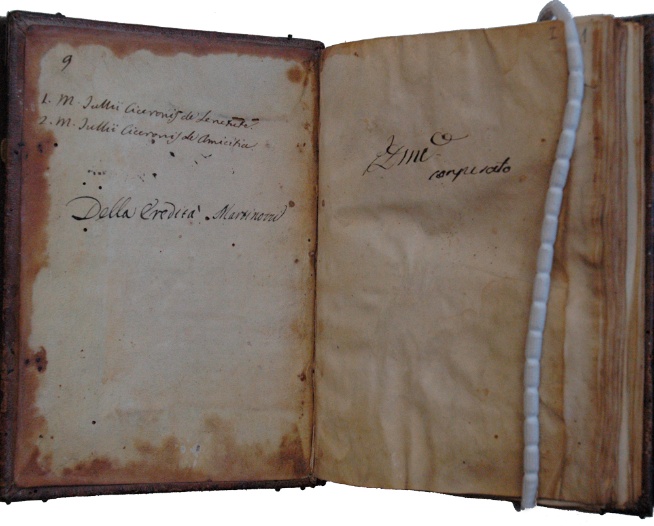 9
1. M. Tullii Ciceronis de Senectute
2. M. Tullii Ciceronis de Amicitia
Della Eredità
I